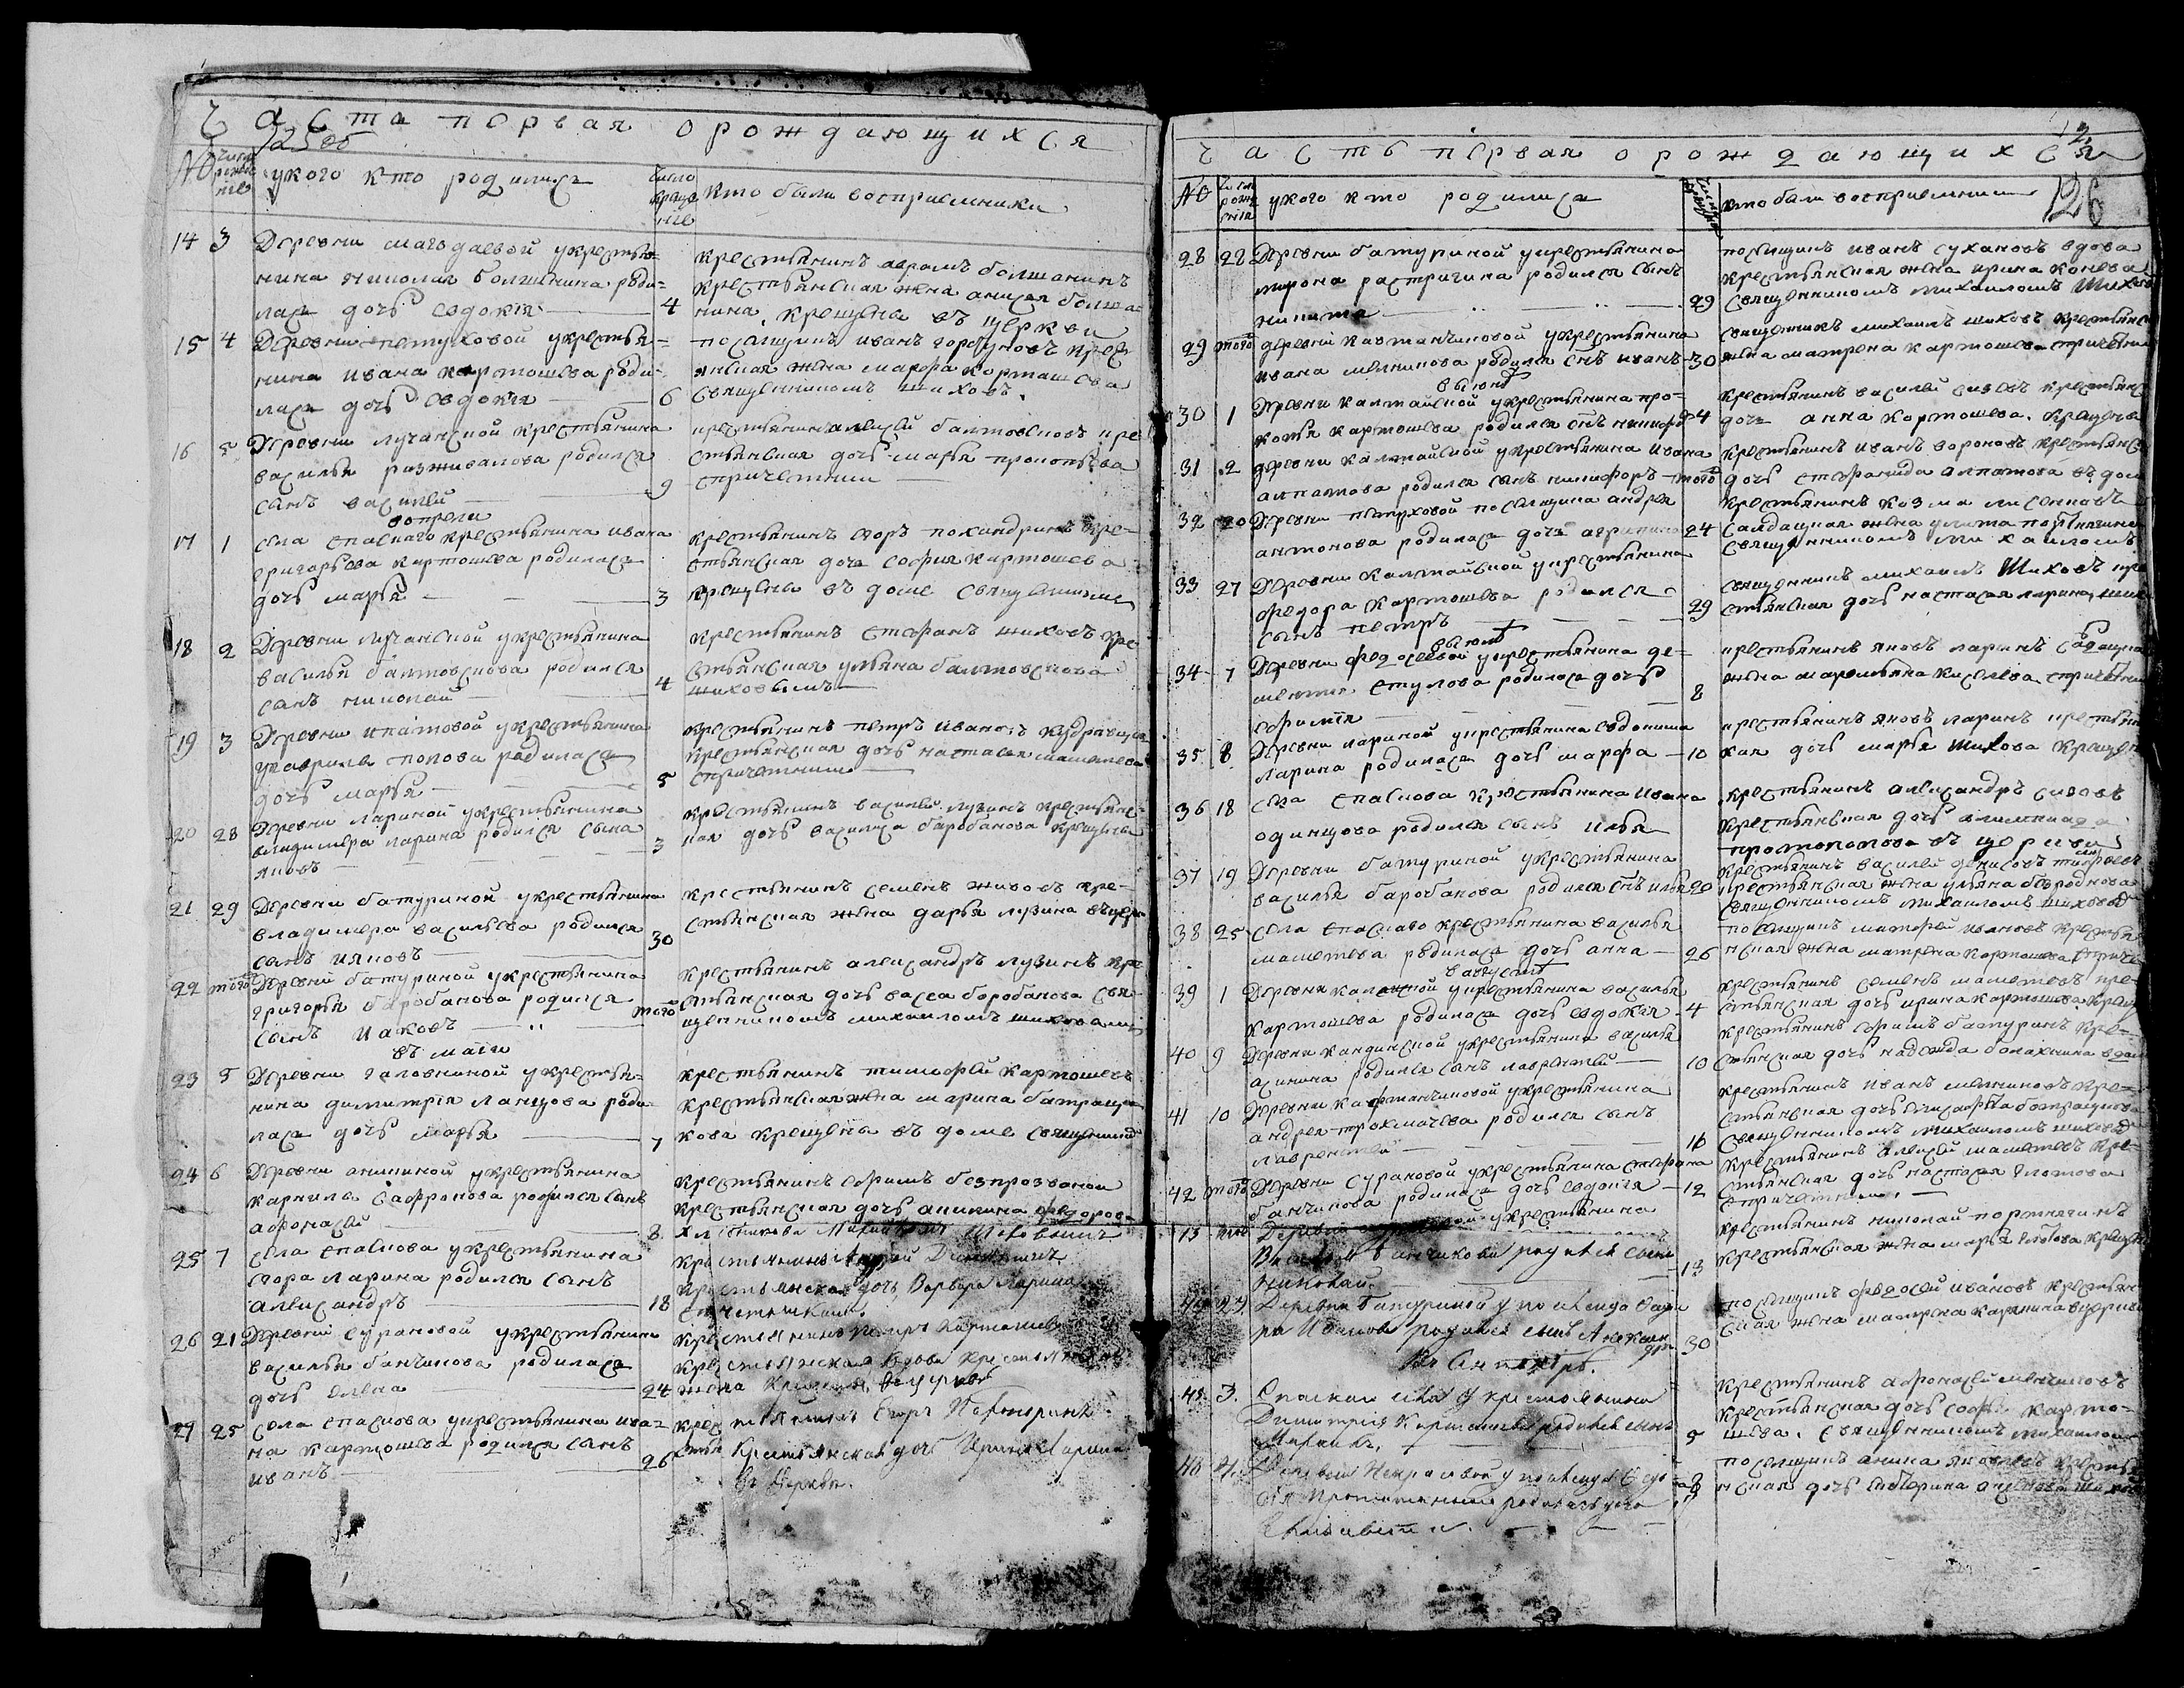 Часть первая о рождающихся
125 об
№ число рождения
у кого кто родился
число крещения
кто были восприемники
14 3 Деревни магадаевой укрестья=
нина николая болшанина роди=
лась дочь евдокия 4
крестьянинъ аврамъ болшанинъ
крестьянская жена анисья болша
нина, крещены въ церкви
15 4 Деревни петуховой укрестья=
нина ивана картошева роди=
лась дочь евдокия 6
поселщикъ иванъ горбуновъ крес
янская жена марфа картошева
священникомъ шиховъ.
16 5 Деревни лучанской крестьянина
василья разживалова родился
сынъ василей 9
крестьянинъ алексей балтовсковъ кре
стьянская дочь марья прокопьева
спричетники
вопрели
17 1 села спаскаго крестьянина ивана
григорьева картошева родилась
дочь марья 3
крестьянинъ егоръ поландринъ кре=
стьянская дочь софия картошева
крещены въ доме священником
18 2 Деревни лучанской укрестьянина
василья балтовскова родился
сынъ николай 4
крестьянинъ стефанъ шиховъ кре
стьянская ульяна балтовскова
шиховымъ
19 3 Деревни ипатовой укрестьянина
гаврила попова родилась
дочь марья 5
крестьянинъ петръ ивановъ кудрявцев
крестьянская дочь настасья машетева
спричетники
20 28 Деревни лариной укрестьянина
владимера ларина родился сынъ
яковъ 3
крестьянинъ василей лузинъ крестьянс=
кая дочь василиса барабанова крещены
21 29 Деревни батуриной укрестьянина
владимера васильева родился
сынъ ияковъ 30
крестьянинъ семенъ жиховъ кре=
стьянская жена дарья лузина въ церк
22 того Деревни батуриной укрестьянина
григорья барабанова родился
сынъ иаковъ того
крестьянинъ александръ лузинъ кре
стьянская дочь васса боробанова свя=
щенникомъ михаиломъ шиховымъ
въ маие
23 5 Деревни головниной укрестья=
нина димитрия ланцова роди=
лась дочь марья 7
крестьянинъ тимофей картошевъ
крестьянская жена марина батраще
кова крещены въ доме священником
24 6 Деревни аникиной укрестьянина
карнила сафронова родился сынъ
афонасей 8
крестьянинъ ефимъ безпрозваной
крестьянская дочь аникина федоров
Михайломъ Шиховымъ
25 7 села спаскова укрестьянина
егора ларина родился сынъ
александръ 18
крестьянинъ Андрей
крестьянская дочь Варвара Ларина
спричетниками.
26 21 Деревни сурановой укрестьянина
василья банчикова родилась
дочь елена 24
крестьянинъ петръ Картошевъ
крестьянская вдова
жена Крещены, вцеркве
27 25 села спаскова укрестьянина ива=
на картошева родился сынъ
иванъ 26
крестьянинъ Егоръ
Крестьянская дочь Ирина Ларина
въ церкви.
Часть первая о рождающихся
126
№ число рождения
у кого кто родился
кто были восприемники
28 22 Деревни батуриной укрестьянина
мирона растригина родился сынъ
никита 29
поселщикъ иванъ сухановъ вдова
крестьянская жена ирина конева
священникомъ михаиломъ Шихов
29 того деревни кавтанчиковой укрестьянина
ивана мелникова родился снъ иванъ 30
священникъ михаилъ шиховъ крестьянс
жена матрена картошева спричетни
виюне
30 1 Деревни калтайской укрестьянина про=
копья картошева родился снъ никифр 4
крестьянинъ василей сизовъ крестьянс
дочь анна картошева. Крещены
31 2 деревни калтайской укрестьянина ивана
алпатова родился сынъ никифоръ того
крестьянинъ иванъ вороновъ крестьянск
дочь стефанида алпатова въ дом
32 20 Деревни петуховой поселщика андрея
антонова родилась дочь агрипина 24
крестьянинъ козма лисенковъ
салдацкая жена улита портнягина
священникомъ михаиломъ
33 27 Деревни калтайской укрестьянина
федора картошева родился
сынъ петръ 29
священникъ михаилъ Шиховъ кре
стьянская дочь настасья ларина, ших
виюле
34 7 Деревни федосеевой укрестьянина де=
ментия стулова родилась дочь
ефимия 8
крестьянинъ яковъ ларинъ
жена маремьяна киселева спричетни
35 8 Деревни лариной укрестьянина евдокима
ларина родилась дочь марфа 10
крестьянинъ яковъ ларинъ крестьян
кая дочь марья Шихова крещен
36 18 села спаскова крестьянина ивана
одинцова родился сынъ илья
крестьянинъ александръ сизовъ
крестьянская дочь
протопопова въ церкви
37 19 Деревни батуриной укрестьянина
василья баробанова родился снъ илья 20
крестьянинъ василей денисовъ
крестьянская жена ульяна безроднова
священникомъ михаиломъ шиховым
38 25 села спаскаво крестьянина василья
машетева родилась дочь анна 26
поселщикъ матфей ивановъ крестья
нская жена матрена картошева спричет
вавгусте
39 1 Деревни калтайской укрестьянина василья
картошева родилась дочь евдокия 4
крестьянинъ семенъ машетевъ кре=
стьянская дочь ирина картошева крещ
40 9 Деревни кандинской укрестьянина василья
ахинина родился сынъ лаврентей 10
крестьянинъ ефимъ батуринъ кре=
стьянская дочь надежда балахнина вдом
41 10 Деревни кафтанчиковой укрестьянина
андрея трокмачева родился сынъ
лаврентей 16
крестьянинъ иванъ мелниковъ кре=
стьянская дочь елисафта батращкова
священникомъ михаиломъ шиховым
42 того Деревни сурановой укрестьянина стефана
банчикова родилась дочь евдокия 12
крестьянинъ алексей машетевъ кре=
стьянская дочь настасья глотова
спричетники.
43 того Деревни укрестьянина
банчикова родился сынъ
николай 13
крестьянинъ николай портнягинъ
крестьянская жена марья глотова крещен
44 27 Деревни батуриной упоселщика
Иванова родился сынъ Александръ 30
поселщикъ федосей ивановъ крестьян
ская жена матрена карпина вцеркви
въ Сентябрѣ.
45 3. Спаскаго села укрестьянина
Димитрия Картошева родился сынъ
Михаилъ. 5
крестьянинъ афонасей мелниковъ
крестьянская дочь софья карто=
шева. священникомъ михаилом
46 4. Деревни Некрасовой упоселщика
родилась дочь
Елисавета. 8
поселщикъ аника яковлевъ крестья
нская дочь екатерина